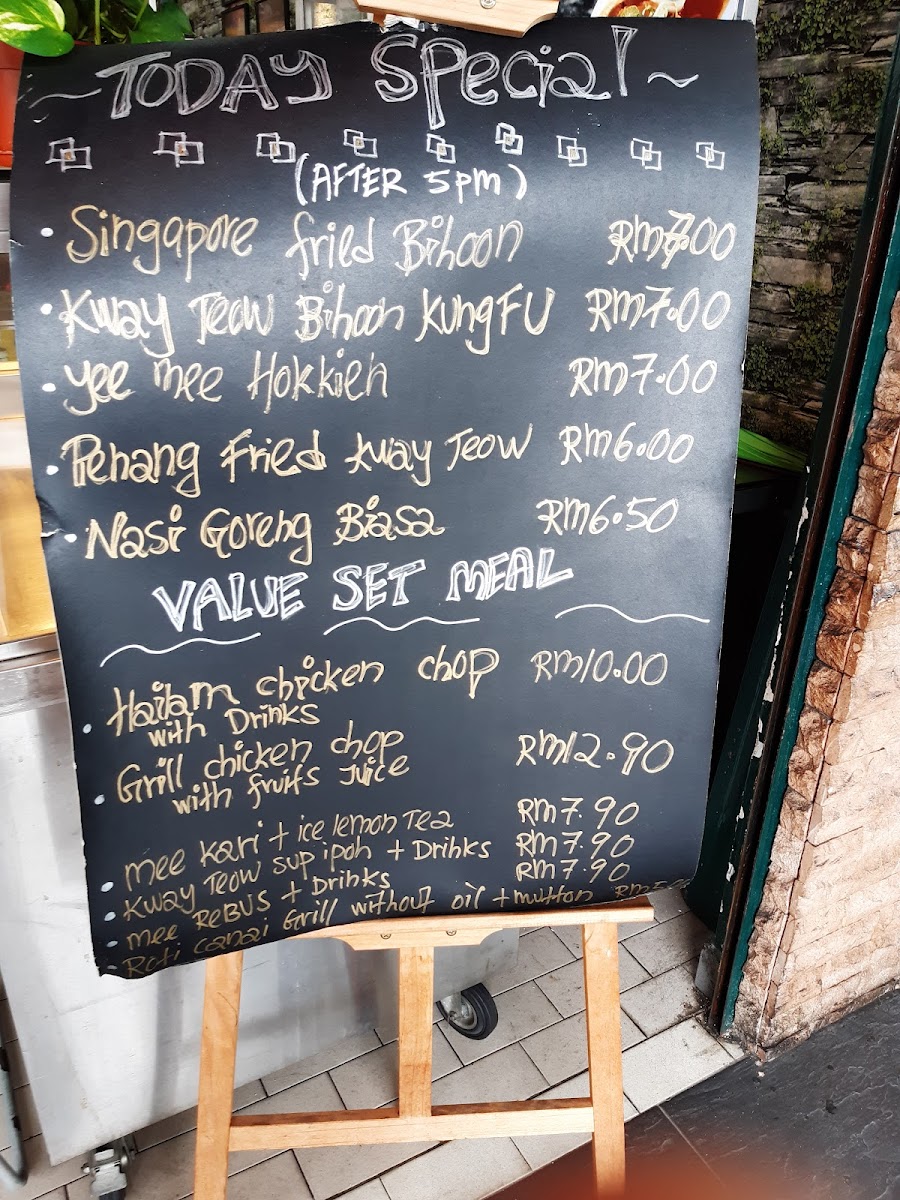 ~TODAY Special~
(AFTER 5pm)
• Singapore fried Bihoon RM7.00
• Kway Teow Bihoon KungFU RM7.00
• Yee mee Hokkien RM7.00
• Penang Fried kway Teow RM6.00
• Nasi Goreng Biasa RM6.50
VALUE SET MEAL
• Hailam chicken chop RM10.00
with Drinks
• Grill chicken chop RM12.90
with fruits Juice
• mee kari + ice lemon Tea RM7.90
• Kway Teow sup ipoh + Drinks RM7.90
• mee ReBUS + Drinks RM7.90
• Roti canai Grill without oil + mutton